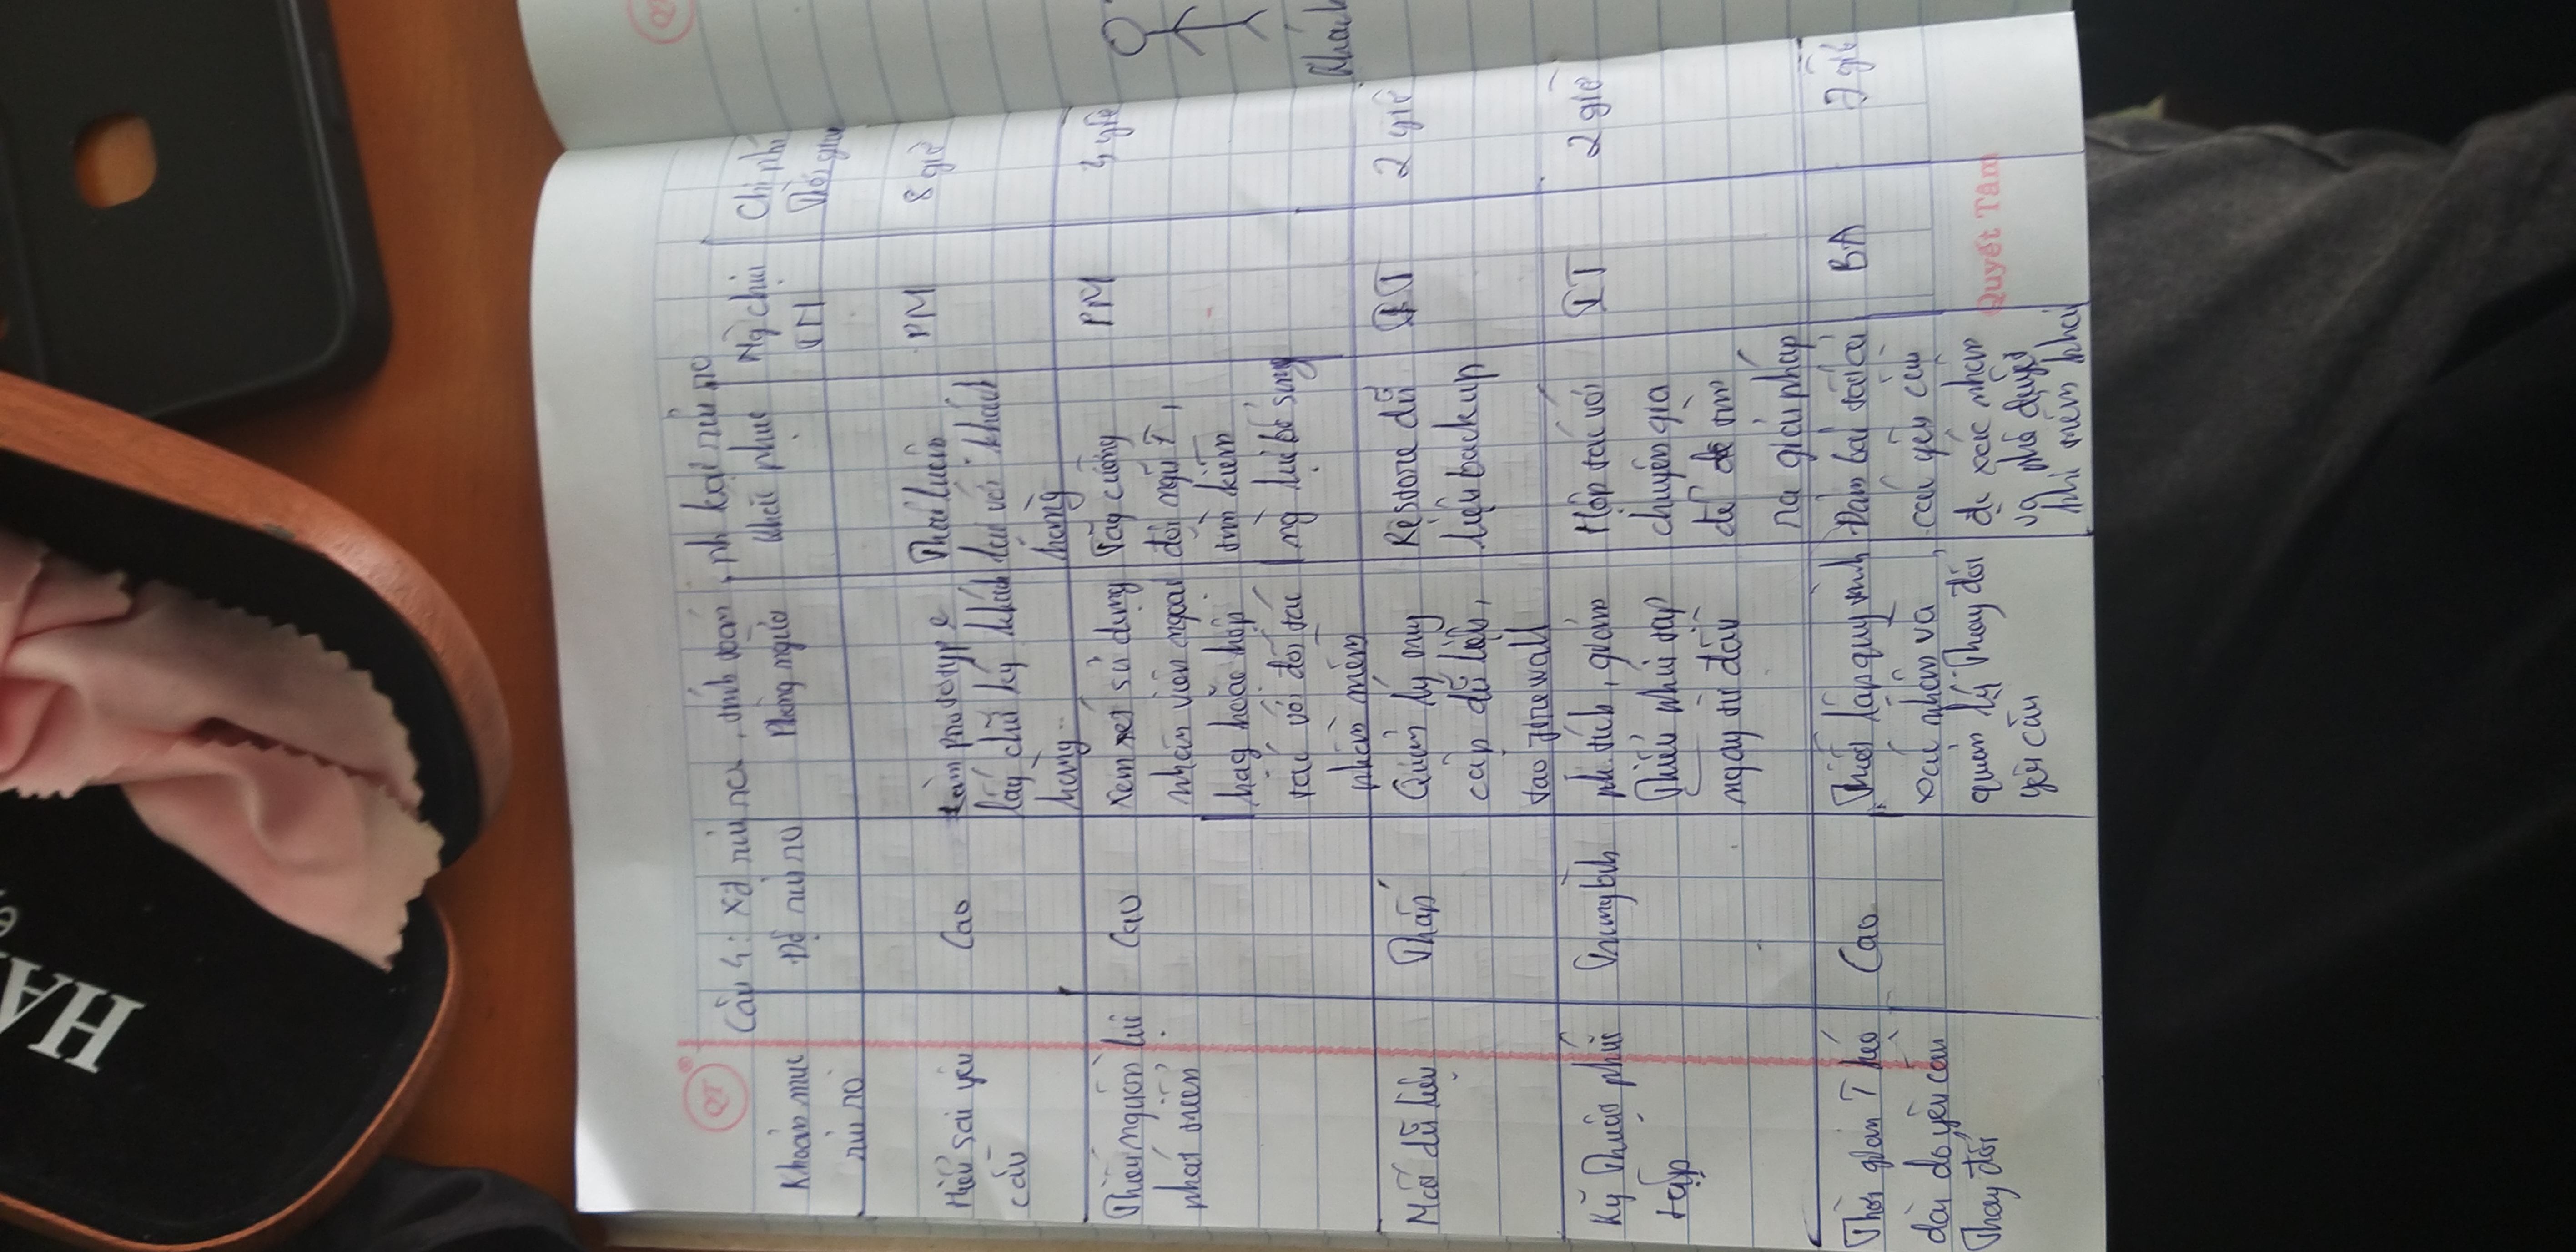 QT
Câu 4: Xđ rủi ro, tính toán, ph loại rủi ro
Khoản mục rủi ro
Độ rủi ro
Phòng ngừa
Khắc phục
Ng chịu TN
Chi phí Thời gian
Hiểu sai yêu
cầu
Cao
Làm prototype
lấy chữ ký khách
hàng
Thảo luận
lại với khách
hàng
PM
8 giờ
Thiếu nguồn lực
phát triển
Cao
Xem xét sử dụng
nhân viên ngoài
hoặc hợp
tác với đối tác
phần mềm
Tăng cường
đội ngũ,
tìm kiếm
bổ sung
PM
4 giờ
Mất dữ liệu
Thấp
Quản lý truy
cập dữ liệu,
tạo firewall
Restore dữ
liệu backup
IT
2 giờ
Kỹ thuật phức
tạp
Trung bình
ph tích, giảm
thiểu phức tạp
ngay từ đầu
Hợp tác với
chuyên gia
để tìm
ra giải pháp
IT
2 giờ
Thời gian kéo
dài do yêu cầu
thay đổi
Cao
Thiết lập quy trình
xác nhận và
quản lý thay đổi
yêu cầu
Đảm bảo tất cả
các yêu cầu
đc xác nhận
và phê duyệt
BA
2 giờ
Quyết Tâm
Khách
HA